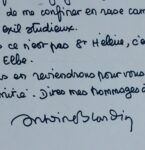 de me confiner en rase cam
exil studieux.
ce n'est pas Ste Hélène, c'e
Elbe.
en reviendrons pour vous
Dites mes hommages à
Antoine Blondin